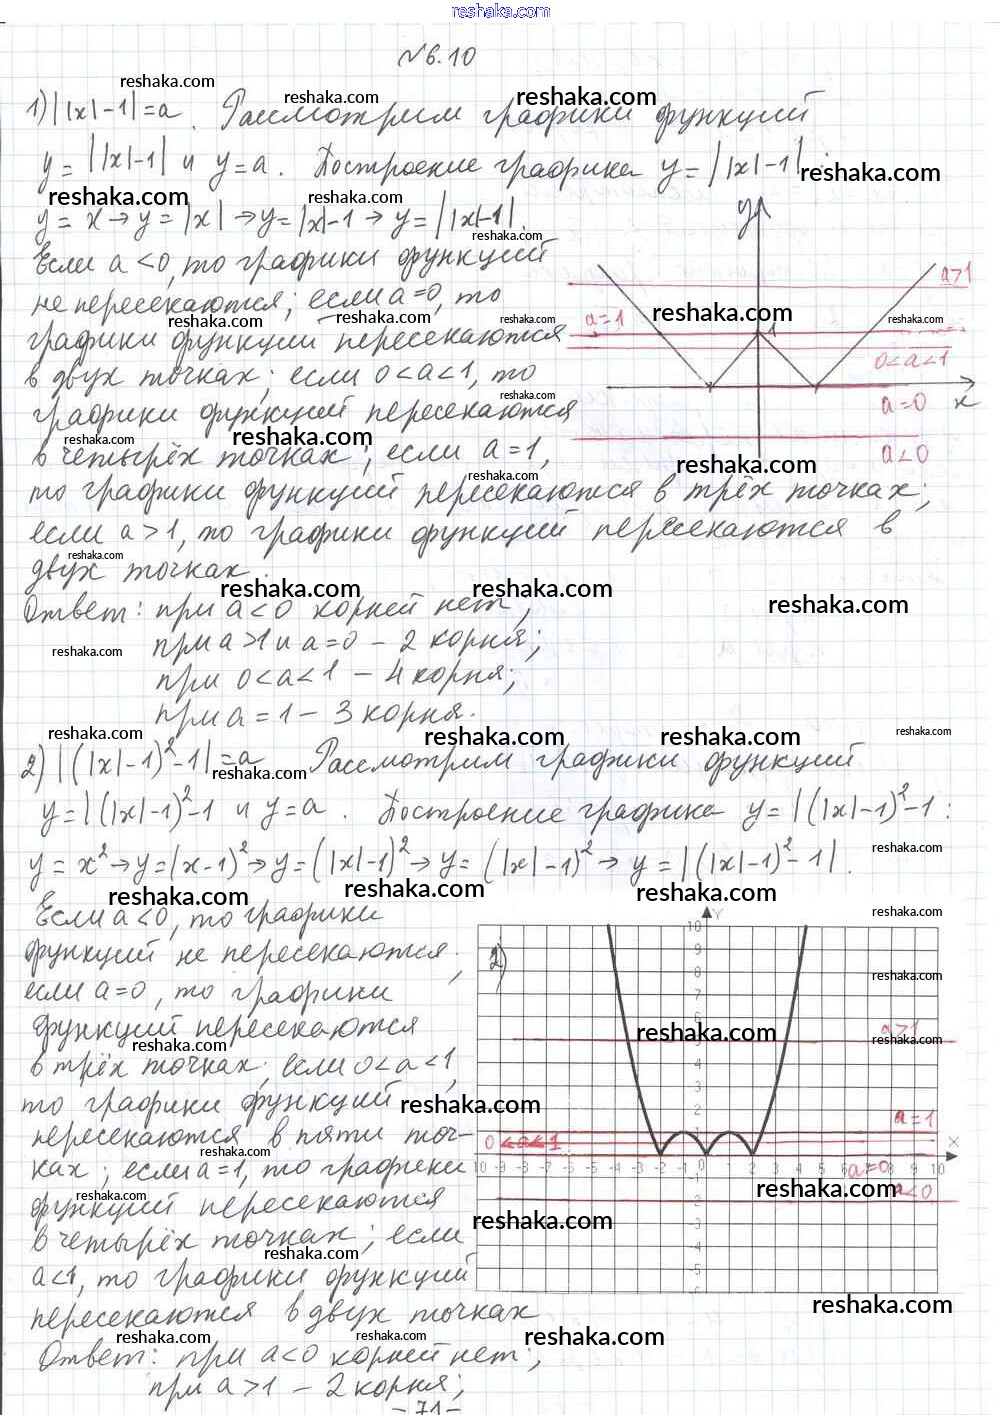 reshaka.com
№6.10
1) ||x|-1|=a. Рассмотрим графики функций
y=||x|-1| и y=a. Построение графика y=||x|-1|:
y=x→y=|x|→y=|x|-1→y=||x|-1|.
Если a<0, то графики функций
не пересекаются; если a=0, то
графики функций пересекаются
в двух точках; если 0<a<1, то
графики функций пересекаются
в четырёх точках; если a=1,
то графики функций пересекаются в трёх точках;
если a>1, то графики функций пересекаются в
двух точках.
y
a>1
a=1
1
0<a<1
a=0
x
a<0
Ответ: при a<0 корней нет;
при a>1 и a=0 – 2 корня;
при 0<a<1 – 4 корня;
при a=1 – 3 корня.
2) |(|x|-1)²-1|=a Рассмотрим графики функций
y=|(|x|-1)²-1 и y=a. Построение графика y=|(|x|-1)²-1:
y=x²→y=(x-1)²→y=(|x|-1)²→y=(|x|-1)²→y=|(|x|-1)²-1|.
Если a<0, то графики
функций не пересекаются;
если a=0, то графики
функций пересекаются
в трёх точках; если 0<a<1,
то графики функций
пересекаются в пяти точ-
ках; если a=1, то графики
функций пересекаются
в четырёх точках; если
a<1, то графики функций
пересекаются в двух точках
2)
Y
10
9
8
7
6
a>1
4
3
2
a=1
0<a<1
X
10 -9 -8 -7 -6 -5 -4 -3 -2 -1 0 1 2 3 4 5 6 7 8 9 10
a=0
-1
a<0
-2
-3
-4
-5
Ответ: при a<0 корней нет;
при a>1 – 2 корня;
- 71 -